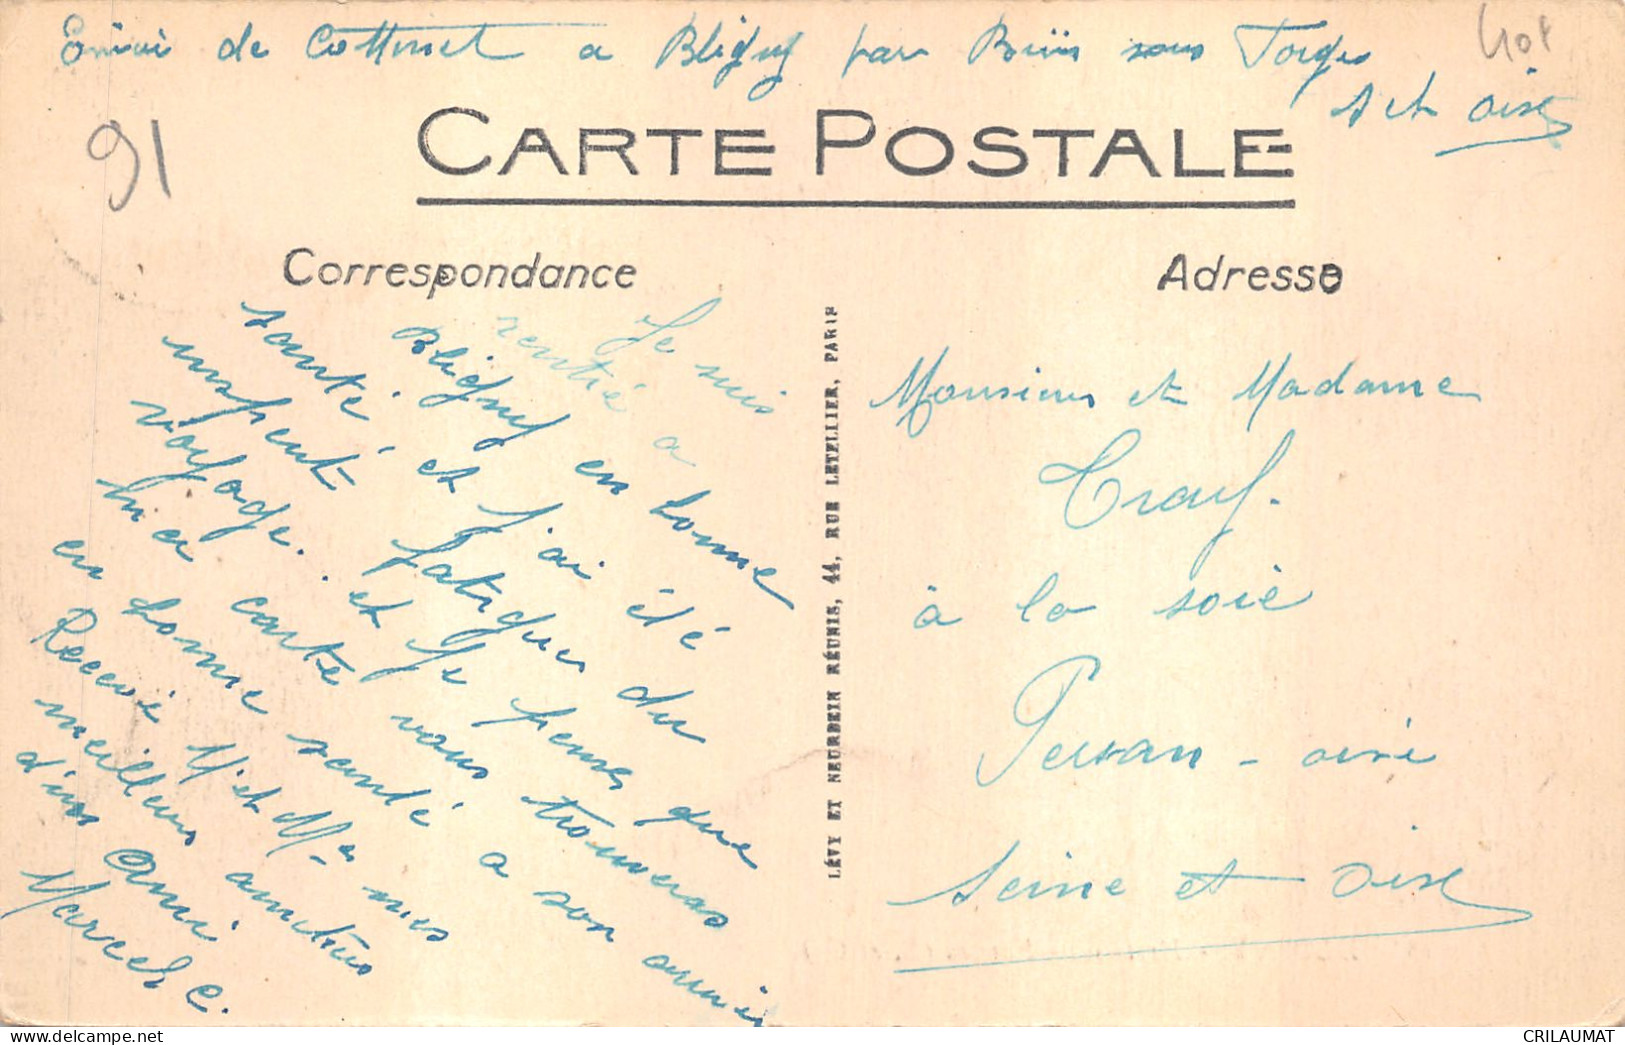 Envoi de Cottinet a Bligny par Briis sous Forges
S et Oise
401
91
CARTE POSTALE
Correspondance
Adresse
Je suis
rentré a
Bligny en bonne
santé, et j'ai été
un peut fatiguer du
voyage. et Je pense que
ma carte vous trouveras
en bonne santé a son arrivé
Recevé Mr et Mme mes
meilleurs amitiés
d'un ami
Marcel C.
LÉVY ET NEURDEIN RÉUNIS, 44, RUE LETELLIER, PARIS
Monsieur et Madame
à la soie
Persan - oise
Seine et Oise
CRILAUMAT